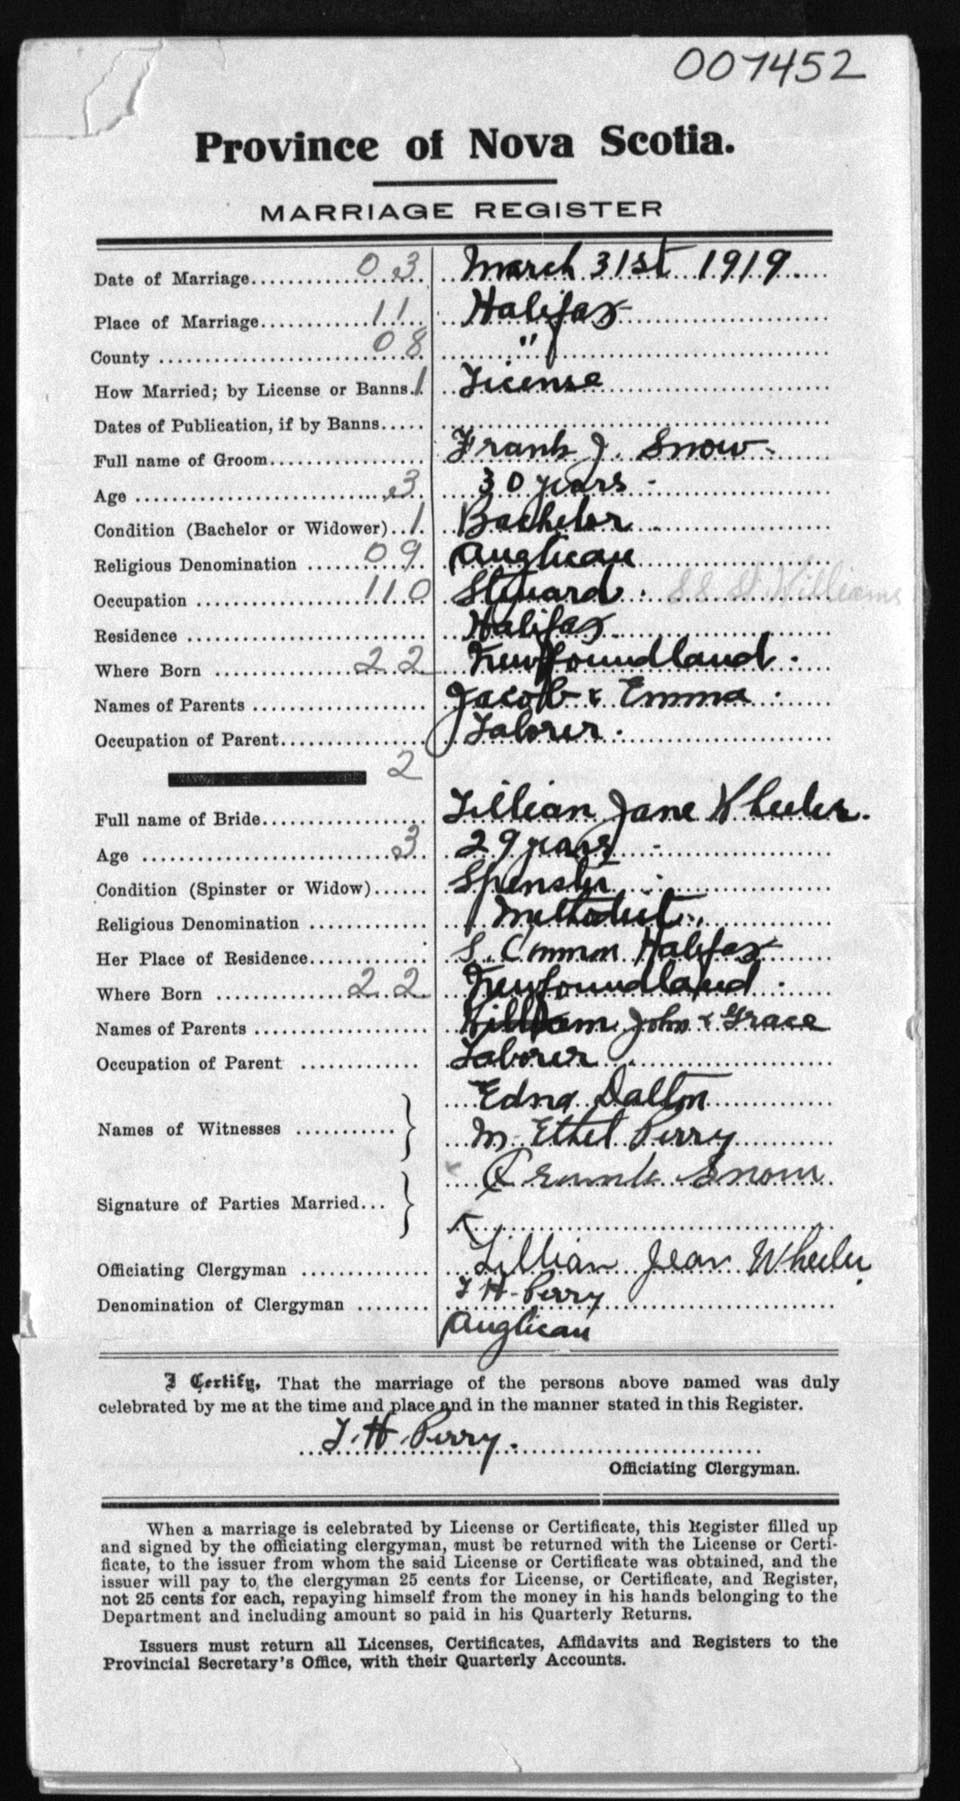 007452
Province of Nova Scotia.
MARRIAGE REGISTER
Date of Marriage 03 March 31st 1919
Place of Marriage 11 Halifax
County 08 "
How Married; by License or Banns 1 License
Dates of Publication, if by Banns
Full name of Groom Frank J. Snow
Age 3 30 years
Condition (Bachelor or Widower) 1 Bachelor
Religious Denomination 09 Anglican
Occupation 110 Steward Williams
Residence Halifax
Where Born 22 Newfoundland
Names of Parents Jacob & Emma
Occupation of Parent Laborer
2
Full name of Bride Lillian Jane Wheeler
Age 3 29 years
Condition (Spinster or Widow) Spinster
Religious Denomination Methodist
Her Place of Residence S. Common Halifax
Where Born 22 Newfoundland
Names of Parents John & Grace
Occupation of Parent Laborer
Edna Dalton
Names of Witnesses M. Ethel Perry
x Frank Snow
Signature of Parties Married
Lillian Jean Wheeler
Officiating Clergyman T H Perry
Denomination of Clergyman Anglican
I Certify, That the marriage of the persons above named was duly
celebrated by me at the time and place and in the manner stated in this Register.
T. H. Perry.
Officiating Clergyman.
When a marriage is celebrated by License or Certificate, this Register filled up
and signed by the officiating clergyman, must be returned with the License or Certi-
ficate, to the issuer from whom the said License or Certificate was obtained, and the
issuer will pay to the clergyman 25 cents for License, or Certificate, and Register,
not 25 cents for each, repaying himself from the money in his hands belonging to the
Department and including amount so paid in his Quarterly Returns.
Issuers must return all Licenses, Certificates, Affidavits and Registers to the
Provincial Secretary's Office, with their Quarterly Accounts.